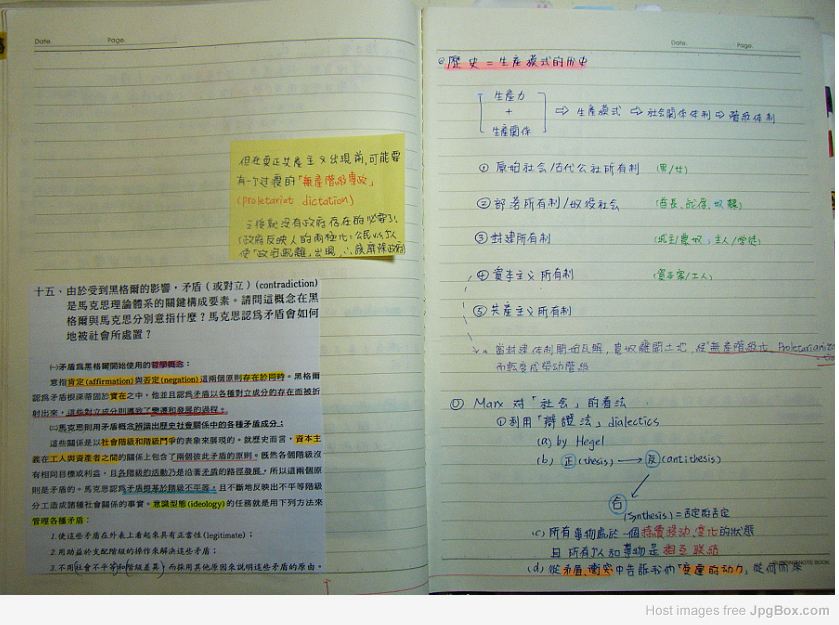 Date. Page.
但在真正共產主义出現前,可能要
有一个过渡的「無產階級專政」
(proletariat dictation)
十五、由於受到黑格爾的影響,矛盾(或對立)(contradiction)
是馬克思理論體系的關鍵構成要素。請問這概念在黑
格爾與馬克思分別意指什麼?馬克思認為矛盾會如何
地被社會所處置?
㈠矛盾為黑格爾開始使用的哲學概念:
意指肯定(affirmation)與否定(negation)這兩個原則存在於同時。黑格爾
認為矛盾根深蒂固於實在之中,他並且認為矛盾以各種對立成分的存在而被折
射出來,這些對立成分則導致了變遷和發展的過程。
㈡馬克思則用矛盾概念辨識出歷史社會關係中的各種矛盾成分:
這些關係是以社會階級和階級鬥爭的表象來展現的。就歷史而言,資本主
義在工人與資產者之間的關係上包含了兩個彼此矛盾的原則。既然各個階級沒
有相同目標或利益,且各階級的活動乃是沿著矛盾的路徑發展,所以這兩個原
則是矛盾的。馬克思認為矛盾根基於階級不平等,且不斷地反映出不平等階級
分工造成諸種社會關係的事實。意識型態(ideology)的任務就是用下列方法來
管理各種矛盾:
1.使這些矛盾在外表上看起來具有正當性(legitimate);
2.用助益於支配階級的操作來解決這些矛盾;
3.不用(社會不平等和階級差異)而採用其他原因來說明這些矛盾的原由。
Date. Page.
◎歷史=生產模式的历史
生產力
+
生產關係
⇨ 生產模式 ⇨ 社会關係体制 ⇨ 階級体制
① 原始社会/古代公社所有制 (男/女)
② 部落所有制/奴役社会 (酋長、武/戰俘、奴隸)
③ 封建所有制 (地主/農奴、主人/學徒)
④ 資本主义所有制 (資本家/工人)
⑤ 共產主义所有制
當封建体制開始瓦解,農奴離開土地,經"無產階級化, Proletarianization
而轉變成勞動階級
Marx 对「社会」的看法
①利用「辯證法」dialectics
(a) by Hegel
(b) 正(thesis) → 反(antithesis)
合
(synthesis)=否定的否定
(c) 所有事物處於一個持續移動、変化的狀態
且所有人和事物是相互联結
(d) 從矛盾、衝突中告訴我們「変遷的动力」從何而來
NOTE BOOK
Host images free JpgBox.com